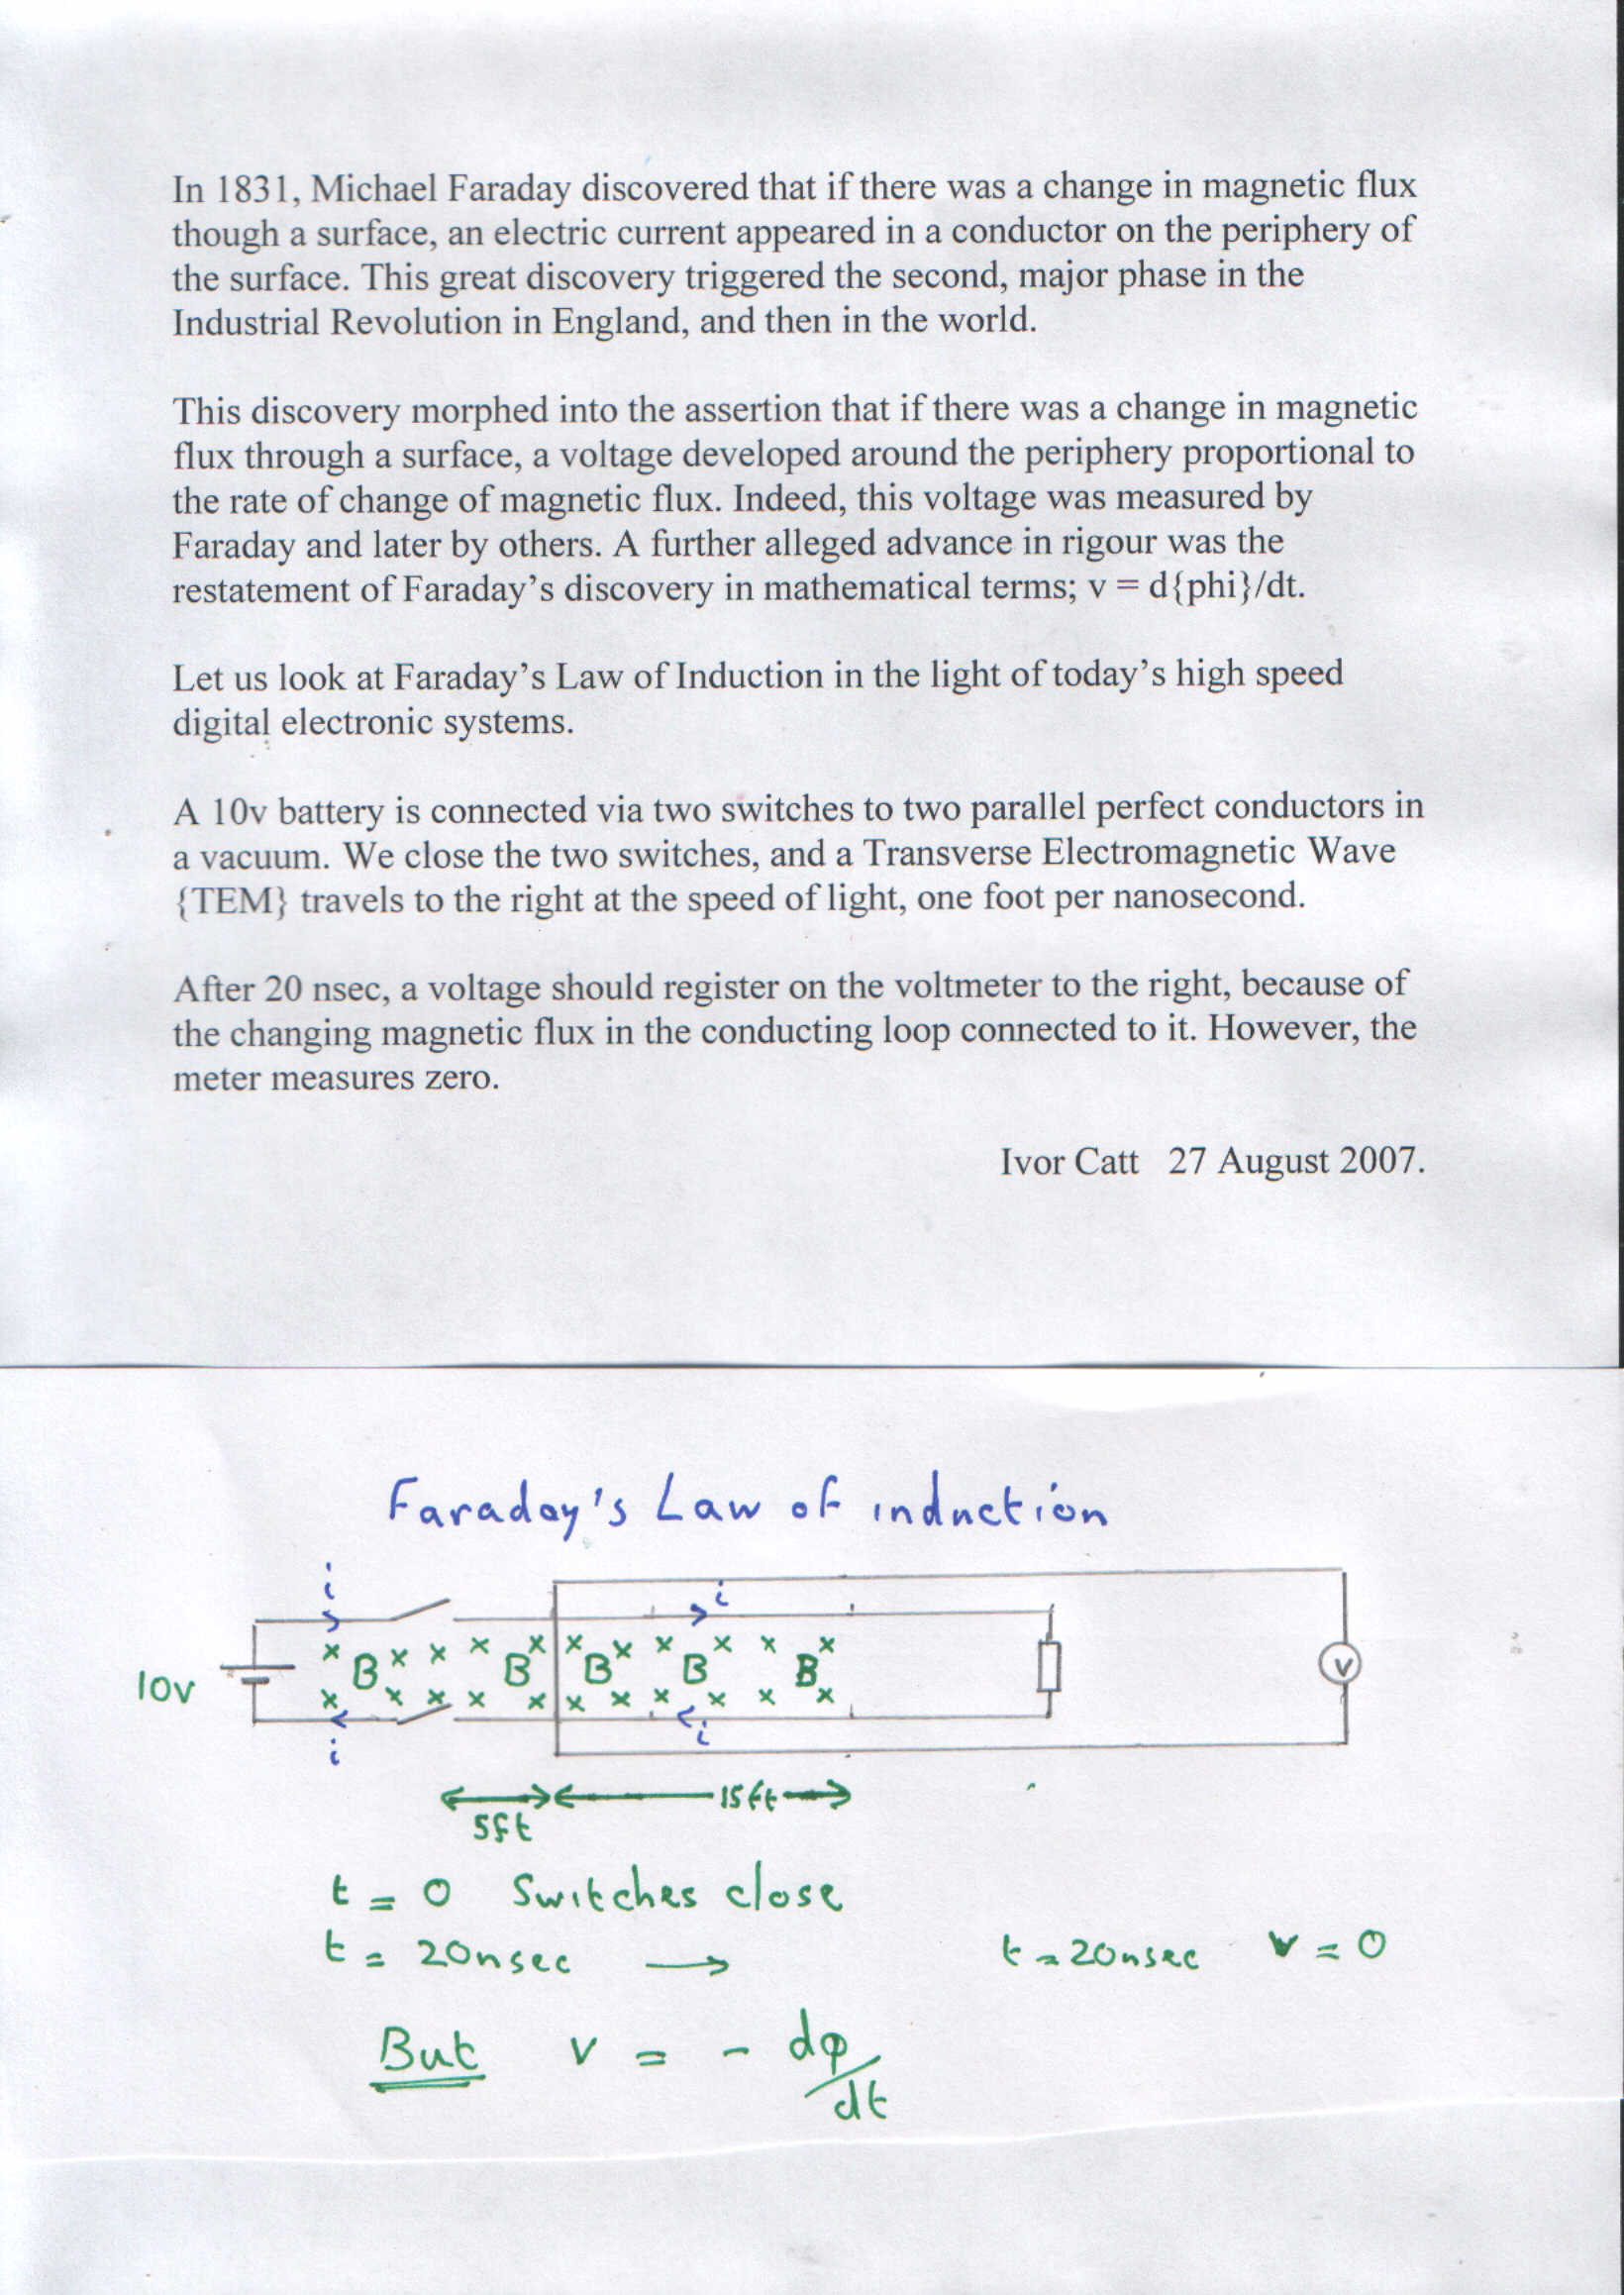 In 1831, Michael Faraday discovered that if there was a change in magnetic flux
though a surface, an electric current appeared in a conductor on the periphery of
the surface. This great discovery triggered the second, major phase in the
Industrial Revolution in England, and then in the world.
This discovery morphed into the assertion that if there was a change in magnetic
flux through a surface, a voltage developed around the periphery proportional to
the rate of change of magnetic flux. Indeed, this voltage was measured by
Faraday and later by others. A further alleged advance in rigour was the
restatement of Faraday's discovery in mathematical terms; v = d{phi}/dt.
Let us look at Faraday's Law of Induction in the light of today's high speed
digital electronic systems.
A 10v battery is connected via two switches to two parallel perfect conductors in
a vacuum. We close the two switches, and a Transverse Electromagnetic Wave
{TEM} travels to the right at the speed of light, one foot per nanosecond.
After 20 nsec, a voltage should register on the voltmeter to the right, because of
the changing magnetic flux in the conducting loop connected to it. However, the
meter measures zero.
Ivor Catt 27 August 2007.
Faraday's Law of induction
i i
B B B B B
10v V
i i
5ft 15ft
t = 0 Switches close
t = 20nsec → t = 20nsec v = 0
But v = - dφ/dt